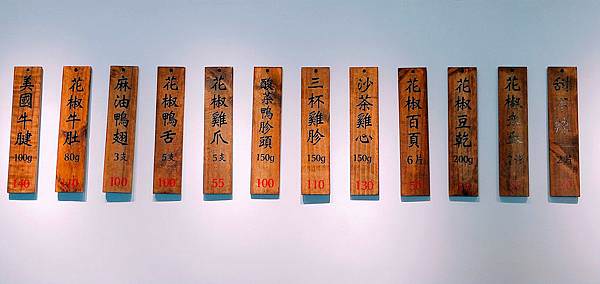 美國牛腱
100g
140
花椒牛肚
80g
麻油鴨翅
3支
100
花椒鴨舌
5支
100
花椒雞爪
5支
55
酸菜鴨胗頭
150g
100
三杯雞胗
150g
110
沙茶雞心
150g
130
花椒百頁
6片
花椒豆乾
200g
花椒